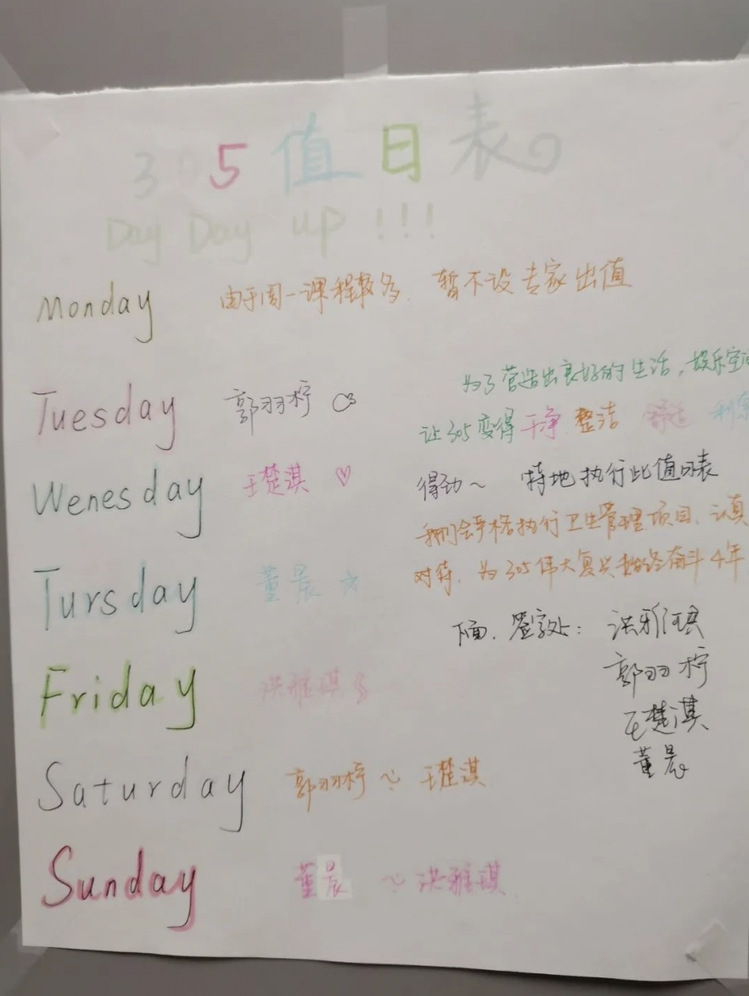 305值日表
Day Day up !!!
Monday 由于周一课程较多 暂不设专家出值
Tuesday 郭羽柠
Wenesday 王楚淇 ♡
Tursday 董晨 ☆
Friday 洪雅琪
Saturday 郭羽柠 ~ 王楚淇
Sunday 董晨 ~ 洪雅琪
为了营造出良好的生活,娱乐空
让305变得干净 整洁 舒适
得劲~ 特地执行此值日表
我们会严格执行卫生管理项目、认真
对待,为305伟大复兴 奋斗4年
下面、签字处: 洪雅琪
郭羽柠
王楚淇
董晨